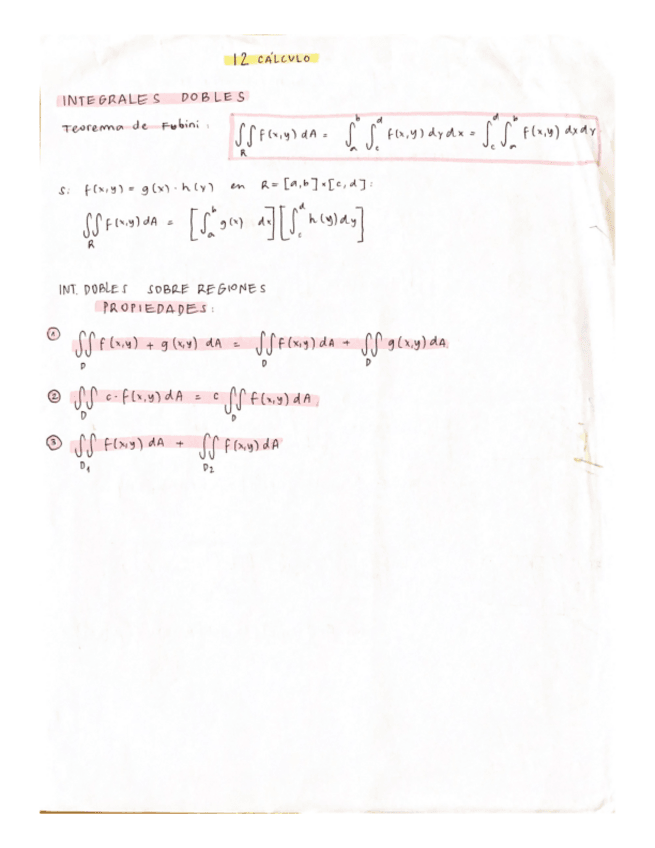 12 CÁLCULO
INTEGRALES DOBLES
Teorema de Fubini: ∬_R f(x,y) dA = ∫_a^b ∫_c^d f(x,y) dy dx = ∫_c^d ∫_a^b f(x,y) dx dy
si f(x,y) = g(x) · h(y) en R = [a,b]×[c,d]:
∬_R f(x,y) dA = [∫_a^b g(x) dx] [∫_c^d h(y) dy]
INT. DOBLES SOBRE REGIONES
PROPIEDADES:
① ∬_D f(x,y) + g(x,y) dA = ∬_D f(x,y) dA + ∬_D g(x,y) dA
② ∬_D c · f(x,y) dA = c ∬_D f(x,y) dA
③ ∬_D1 f(x,y) dA + ∬_D2 f(x,y) dA